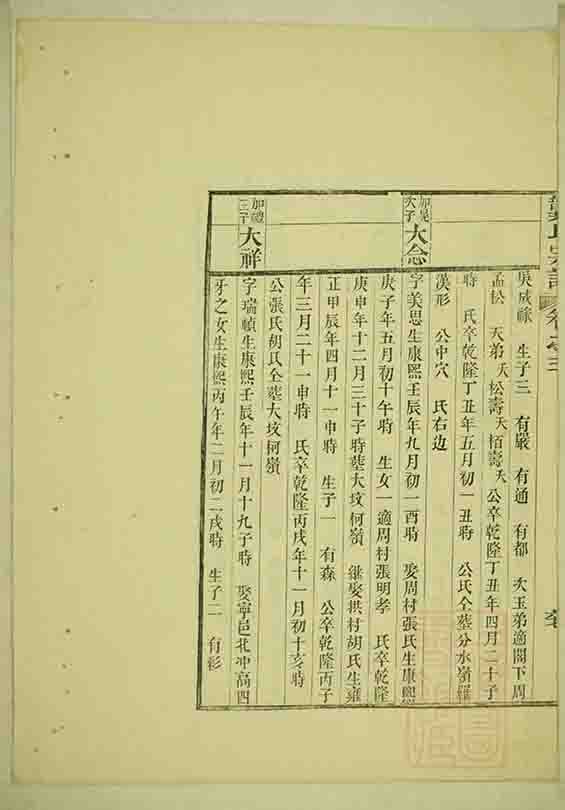 吳成祿　生子三　有嚴　有通　有都　次玉弟適閣下周
孟松　天弟夭　松壽夭　栢壽夭　公卒乾隆丁丑年四月二十子
時　氏卒乾隆丁丑年五月初一丑時　公氏仝塟分水嶺羅
漢形　公中穴　氏右边
大念
字美思生康熙壬辰年九月初一酉時　娶周村張氏生康熙
庚子年五月初十午時　生女一適周村張明孝　氏卒乾隆
庚申年十二月三十子時塟大坟柯嶺　繼娶拱村胡氏生雍
正甲辰年四月十一申時　生子一　有森　公卒乾隆丙子
年三月二十一申時　氏卒乾隆丙戌年十一月初十亥時
公張氏胡氏仝塟大坟柯嶺
加禮三子
大祥
字瑞幀生康熙壬辰年十一月十九子時　娶寧邑北冲高四
牙之女生康熙丙午年二月初二戌時　生子二　有彩